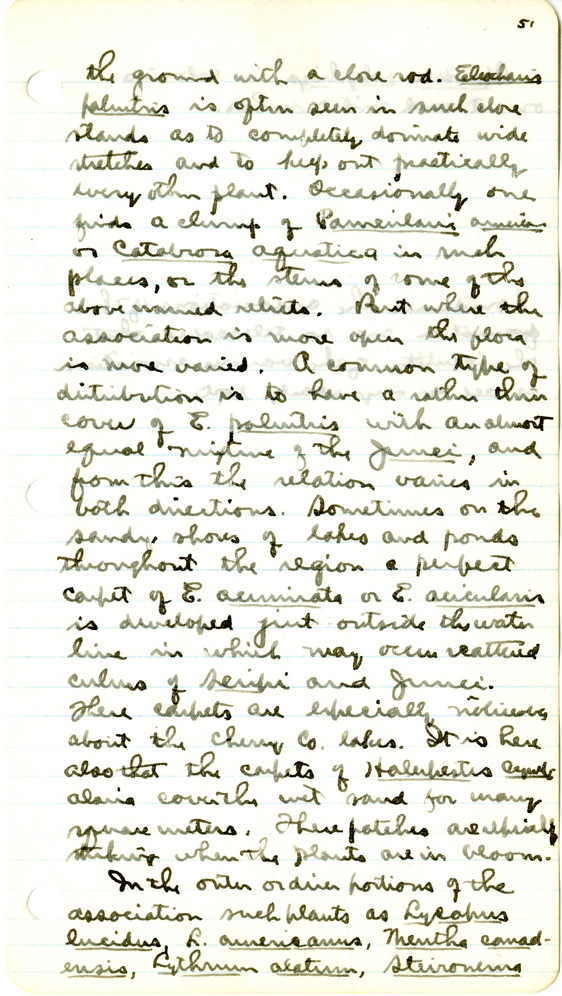 51
the ground with a close sod. Eleocharis
palustris is often seen in such close
stands as to completely dominate wide
stretches and to keep out practically
every other plant. Occasionally one
finds a clump of Panicularia
or Catabrosa aquatica in such
places, or the stems of some of the
above named relicts. But where the
association is more open the flora
is more varied. A common type of
distribution is to have a rather thin
cover of E. palustris with an almost
equal mixture of the Junci, and
from this the relation varies in
both directions. Sometimes on the
sandy shores of lakes and ponds
throughout the region a perfect
carpet of E. acuminata or E. acicularis
is developed just outside the water
line in which may occur scattered
culms of Scirpi and Junci.
These carpets are especially noticeable
about the Cherry Co. lakes. It is here
also that the carpets of Halerpestes Cymb-
alaria cover the wet sand for many
square meters. These patches are especially
striking when the plants are in bloom.
In the outer or drier portions of the
association such plants as Lycopus
lucidus, L. americanus, Mentha canad-
ensis, Lythrum alatum, Steironema